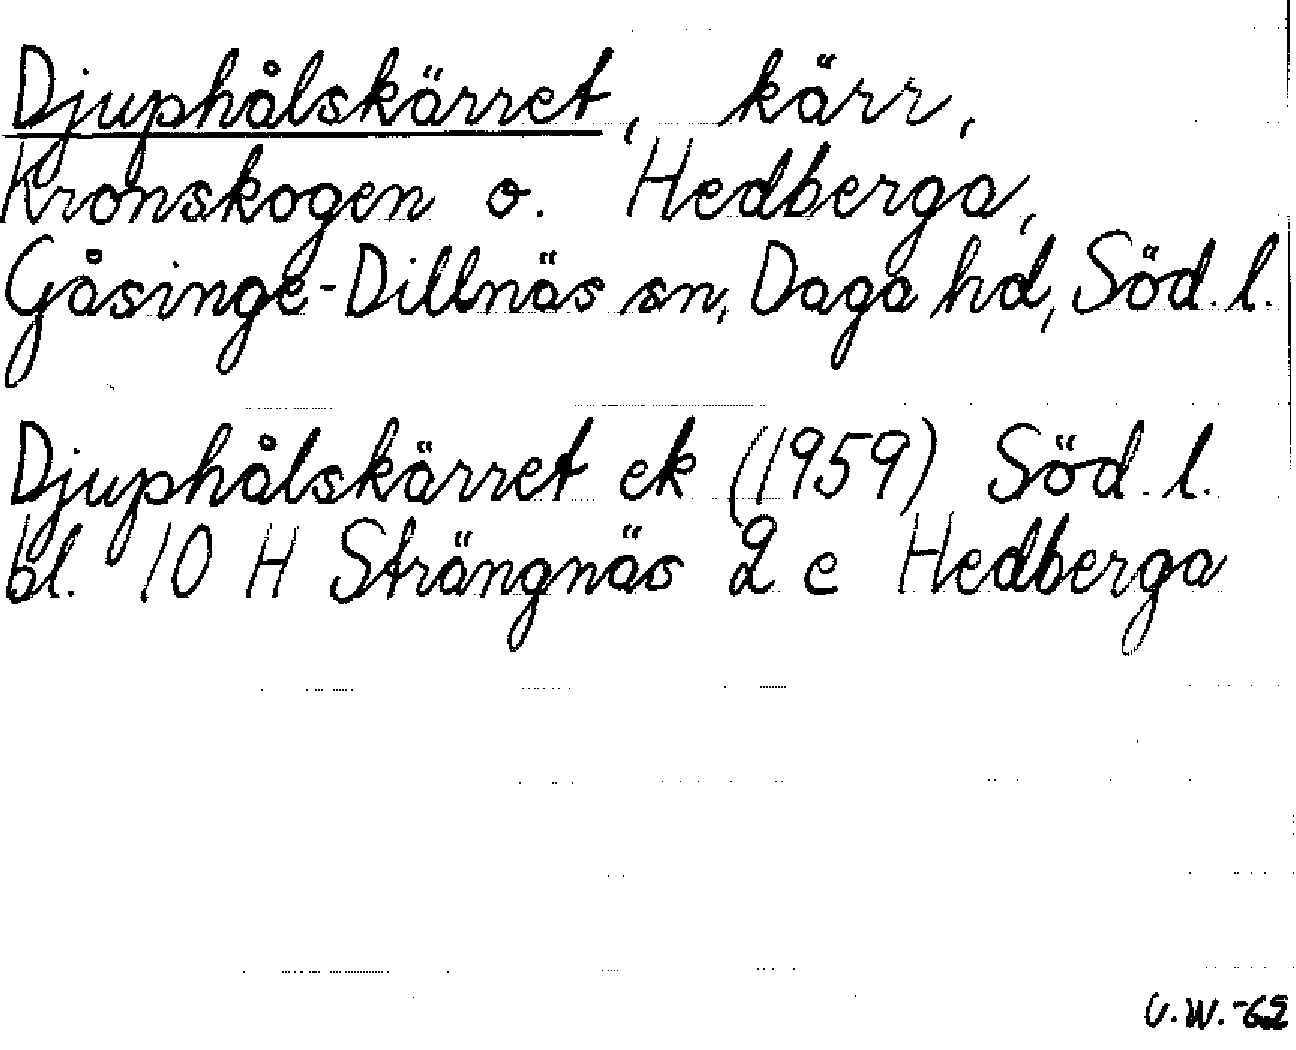 Djuphålskärret, kärr,
Kronskogen o. Hedberga,
Gåsinge-Dillnäs sn, Daga hd, Söd. l.
Djuphålskärret ek (1959) Söd. l.
bl. 10 H Strängnäs 2 c Hedberga
U.W.-62